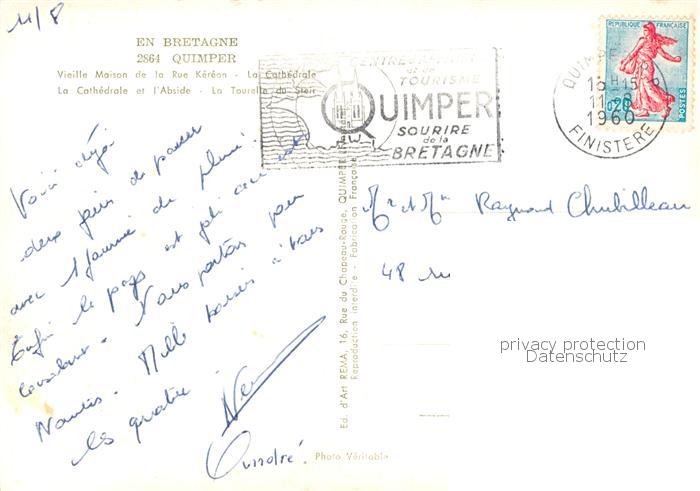 11/8
EN BRETAGNE
2864 QUIMPER
Vieille Maison de la Rue Kéréon - La Cathédrale
La Cathédrale et l'Abside - La Tourelle du Steir
CENTRE
de
TOURISME
QUIMPER
SOURIRE
de la
BRETAGNE
QUIMPER
15H15
11-8
1960
FINISTERE
REPUBLIQUE FRANÇAISE
0,20
POSTES
Voilà déjà
deux jours de passés
avec 1 journée de pluie.
Enfin le pays est joli avec ses
Nous partons pour
Nantes. Mille baisers à tous
les quatre.
André.
Mr et Mme Raymond Chubilleau
48 rue
Ed. d'Art REMA, 16, Rue du Chapeau-Rouge, QUIMPER
Reproduction interdite - Fabrication Française
Photo Véritable
privacy protection
Datenschutz